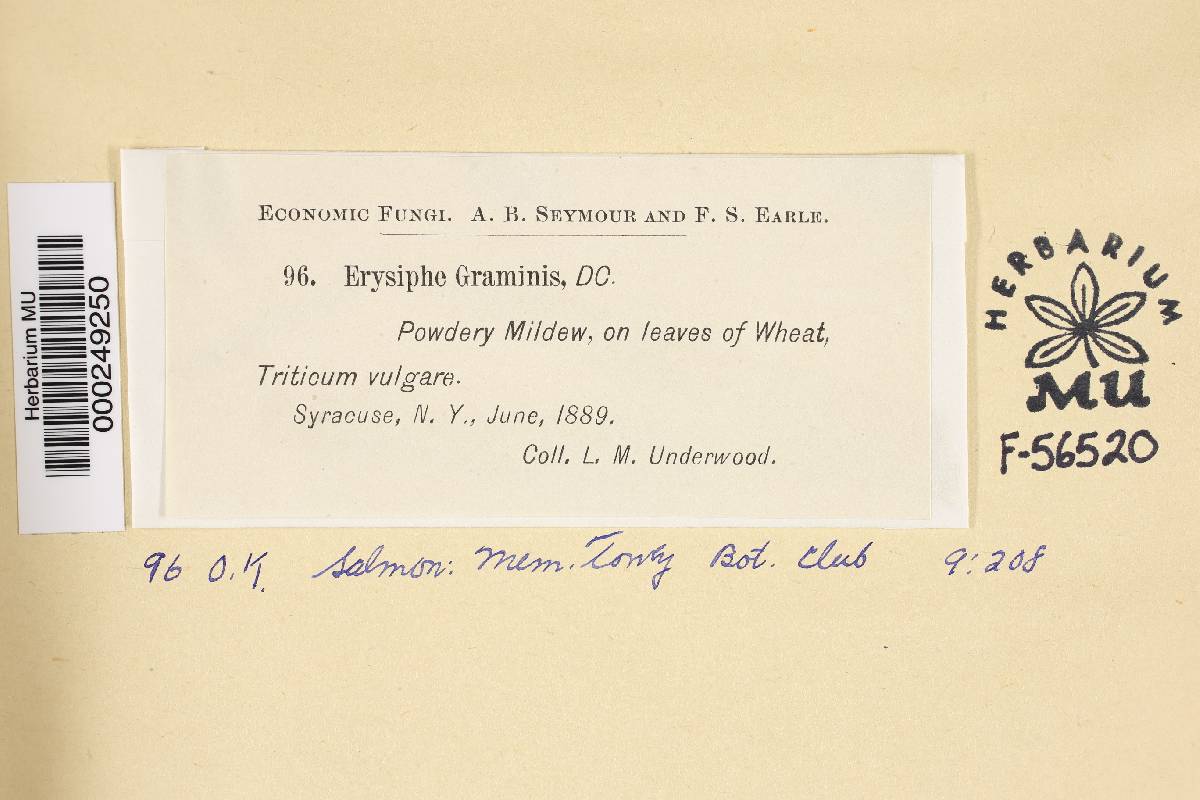 ECONOMIC FUNGI. A. B. SEYMOUR AND F. S. EARLE.
96. Erysiphe Graminis, DC.
Powdery Mildew, on leaves of Wheat,
Triticum vulgare.
Syracuse, N. Y., June, 1889.
Coll. L. M. Underwood.
Herbarium MU
000249250
HERBARIUM
MU
F-56520
96 O.K. Salmon: Mem. Torrey Bot. Club 9:208